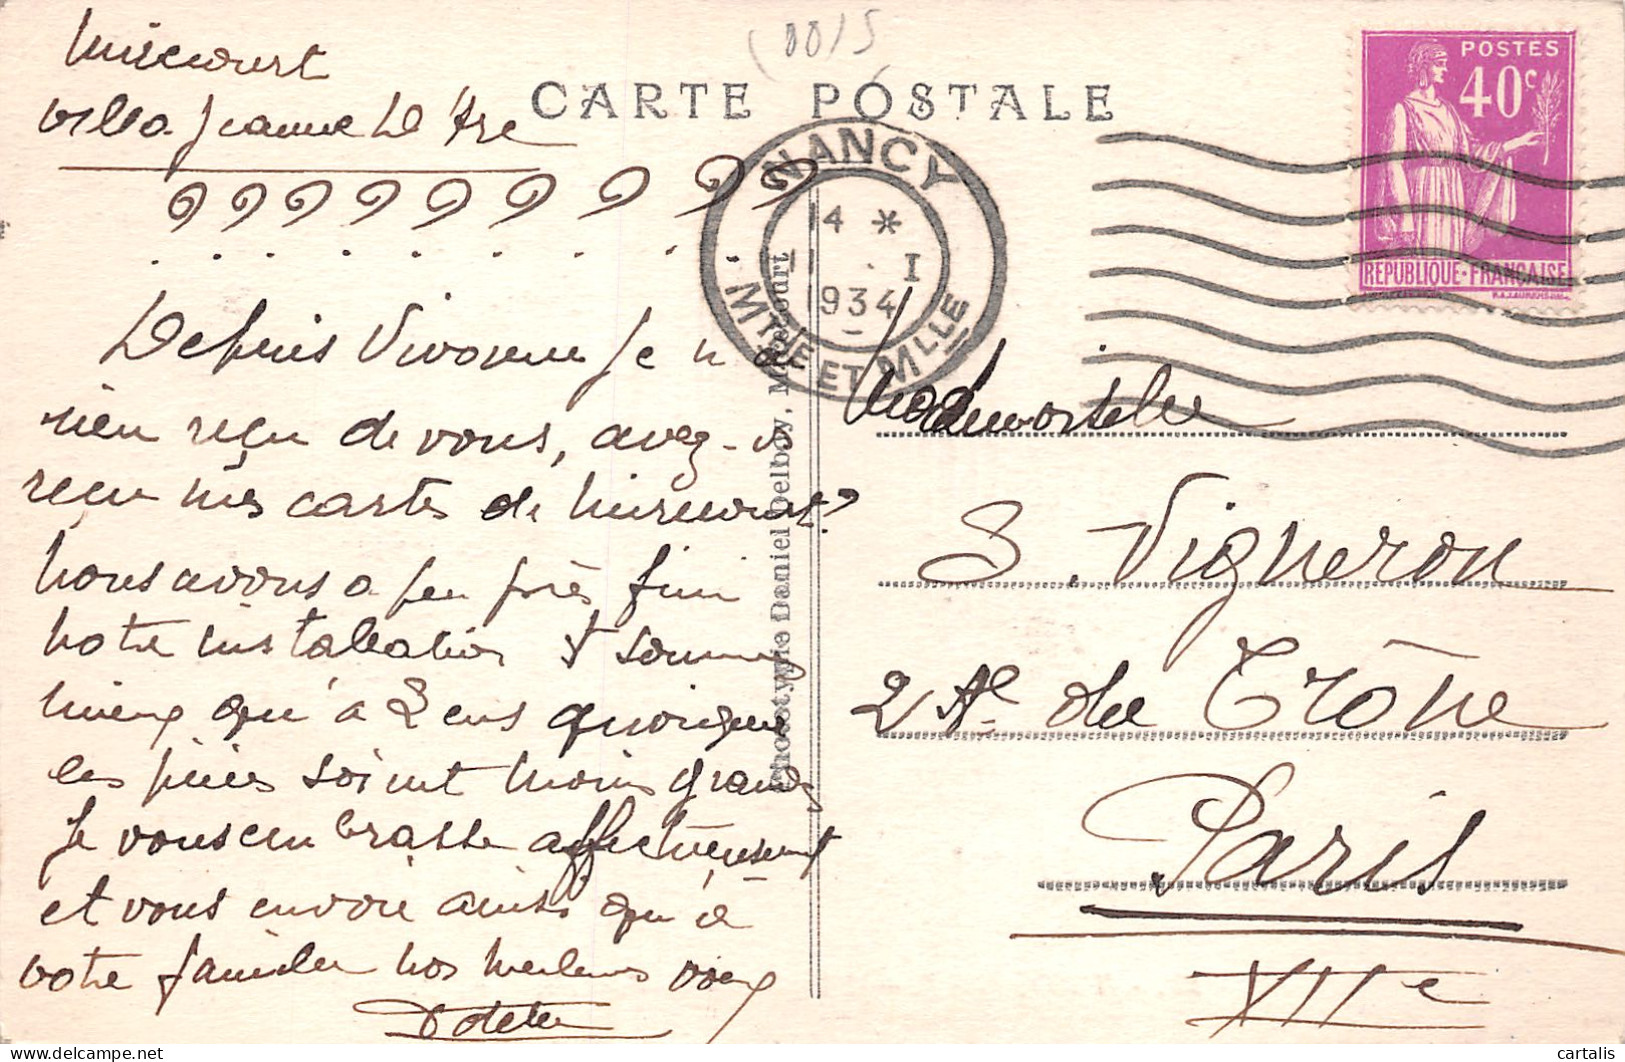 (0015
Mirecourt
Villa Jeanne D'Arc
CARTE POSTALE
NANCY
14 * I
1934
MTHE ET MLLE
POSTES
40c
REPUBLIQUE·FRANÇAISE
? ? ? ? ? ? ? ? ?
Depuis Vivonne je n'ai
rien reçu de vous, avez-v
reçu mes cartes de Mirecourt?
Nous avons a peu près fini
notre installation et sommes
mieux qu'à Lens quoique
les pièces soient moins grandes
Je vous embrasse affectueusement
et vous envoie ainsi qu'à
votre famille nos meilleurs voeux
Phototypie Daniel Delboy, Mirecourt
Mademoiselle
S. Vigneron
2 Av. du Trône
Paris
XIIe
cartalis